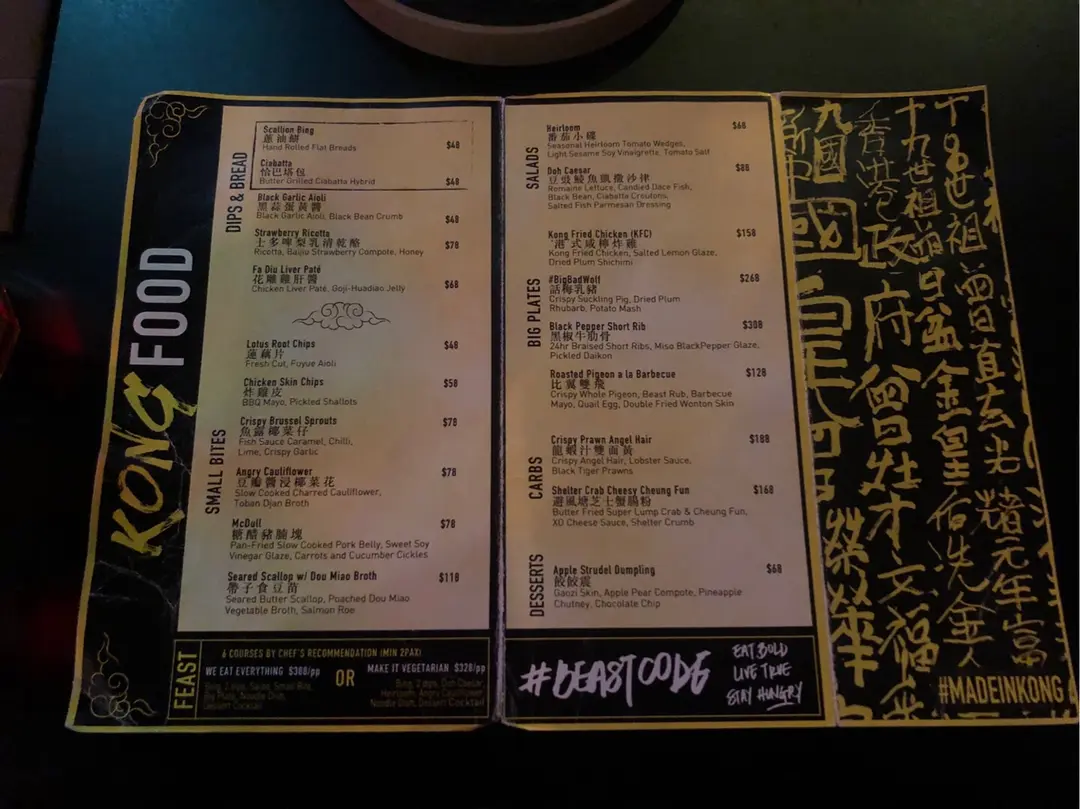 KONG FOOD
DIPS & BREAD
Scallion Bing $48
蔥油餅
Hand Rolled Flat Breads
Ciabatta $48
恰巴塔包
Butter Grilled Ciabatta Hybrid
Black Garlic Aioli $48
黑蒜蛋黃醬
Black Garlic Aioli, Black Bean Crumb
Strawberry Ricotta $78
士多啤梨乳清乾酪
Ricotta, Baijiu Strawberry Compote, Honey
Fa Diu Liver Paté $68
花雕雞肝醬
Chicken Liver Paté, Goji-Huadiao Jelly
SMALL BITES
Lotus Root Chips $48
蓮藕片
Fresh Cut, Fuyue Aioli
Chicken Skin Chips $58
炸雞皮
BBQ Mayo, Pickled Shallots
Crispy Brussel Sprouts $78
魚露椰菜仔
Fish Sauce Caramel, Chilli,
Lime, Crispy Garlic
Angry Cauliflower $78
豆瓣醬浸椰菜花
Slow Cooked Charred Cauliflower,
Toban Djan Broth
McDull $78
糖醋豬腩塊
Pan-Fried Slow Cooked Pork Belly, Sweet Soy
Vinegar Glaze, Carrots and Cucumber Cickles
Seared Scallop w/ Dou Miao Broth $118
帶子食豆苗
Seared Butter Scallop, Poached Dou Miao
Vegetable Broth, Salmon Roe
FEAST
6 COURSES BY CHEF'S RECOMMENDATION (MIN 2PAX)
WE EAT EVERYTHING $388/pp
OR
MAKE IT VEGETARIAN $328/pp
Dessert Cocktail
Bing, 2 dips, Doh Caesar
Heirloom, Angry Cauliflower
Noodle Dish, Dessert Cocktail
SALADS
Heirloom $68
番茄小碟
Seasonal Heirloom Tomato Wedges,
Light Sesame Soy Vinaigrette, Tomato Salt
Doh Caesar $88
豆豉鯪魚凱撒沙律
Romaine Lettuce, Candied Dace Fish,
Black Bean, Ciabatta Croutons,
Salted Fish Parmesan Dressing
BIG PLATES
Kong Fried Chicken (KFC) $158
港式咸檸炸雞
Kong Fried Chicken, Salted Lemon Glaze,
Dried Plum Shichimi
#BigBadWolf $268
話梅乳豬
Crispy Suckling Pig, Dried Plum
Rhubarb, Potato Mash
Black Pepper Short Rib $308
黑椒牛肋骨
24hr Braised Short Ribs, Miso BlackPepper Glaze,
Pickled Daikon
Roasted Pigeon a la Barbecue $128
比翼雙飛
Crispy Whole Pigeon, Beast Rub, Barbecue
Mayo, Quail Egg, Double Fried Wonton Skin
CARBS
Crispy Prawn Angel Hair $188
龍蝦汁雙面黃
Crispy Angel Hair, Lobster Sauce,
Black Tiger Prawns
Shelter Crab Cheesy Cheung Fun $168
避風塘芝士蟹腸粉
Butter Fried Super Lump Crab & Cheung Fun,
XO Cheese Sauce, Shelter Crumb
DESSERTS
Apple Strudel Dumpling $68
餃餃震
Gaozi Skin, Apple Pear Compote, Pineapple
Chutney, Chocolate Chip
#BEASTCODE
EAT BOLD
LIVE TRUE
STAY HUNGRY
#MADEINKONG